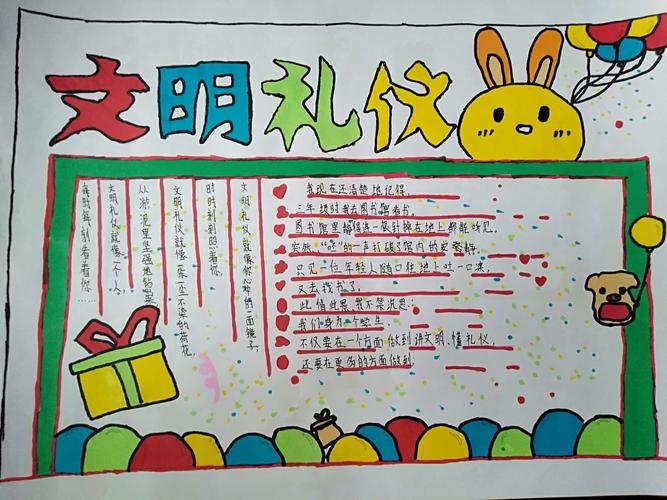 文明礼仪
文明礼仪就像你心中的一面镜子,
时时刻刻照着你,
文明礼仪就像一朵一尘不染的荷花,
从淤泥里坚强地钻出来
文明礼仪就像一个人,
每时每刻看着你……
我现在还清楚地记得,
三年级时我去图书馆看书。
图书馆里静得连一根针掉在地上都能听见。
突然,“呸”的一声打破了馆内的安静。
只见一位年轻人随口往地上吐一口痰。
又去找书了。
此情此景,我不禁沉思:
我们身为一个学生,
不仅要在一个方面做到讲文明、懂礼仪,
还要在更多的方面做到。